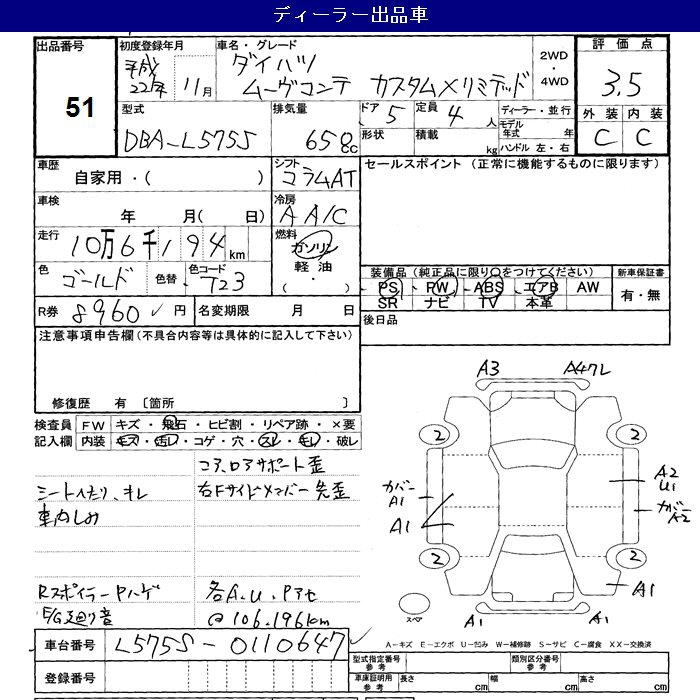 ディーラー出品車
出品番号 51
初度登録年月 平成22年 11月
車名・グレード ダイハツ ムーヴコンテ カスタムXリミテッド
2WD・4WD
評価点 3.5
型式 DBA-L575S
排気量 658cc
ドア 5 定員 4人
形状 積載 kg
ディーラー・並行
モデル年式 年
ハンドル 左・右
外装 内装
C C
車歴 自家用・( )
シフト コラムAT
セールスポイント (正常に機能するものに限ります)
車検 年 月( 日)
冷房 AA/C
走行 10万6千194km
燃料 ガソリン 軽油 ( ・ )
色 ゴールド 色替 色コード T23
装備品 (純正品に限り○をつけてください) 新車保証書
PS PW ABS エアB AW 有・無
SR ナビ TV 本革
R券 8960円 名変期限 月 日
後日品
注意事項申告欄(不具合内容等は具体的に記入して下さい)
修復歴 有 〔箇所 〕
検査員記入欄
FW キズ・飛石・ヒビ割・リペア跡・×要
内装 キズ・汚レ・コゲ・穴・スレ・毛レ・破レ
コア, ロアサポート歪
シートへたり、キレ 右Fサイドメンバー先歪
車内しみ
Rスポイラー Pハゲ 各A.U.Pアセ
E/G廻り音 @106,196km
車台番号 L575S-0110647
登録番号
A3 A47L
2 2
カバーA1
A1
A2 U1
カバーA2
2 2
A1
スペア A1 A1
A-キズ E-エクボ U-凹み W-補修跡 S-サビ C-腐食 XX-交換済
型式指定番号 参考 類別区分番号 参考
車庫証明用 参考 長さ cm 幅 cm 高さ cm